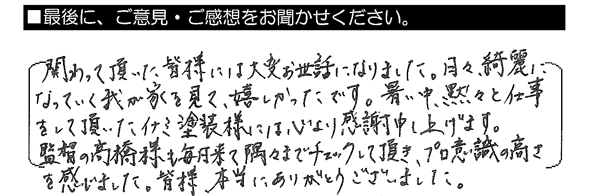 ■最後に、ご意見・ご感想をお聞かせください。
関わって頂いた皆様には大変お世話になりました。日々、綺麗に
なっていく我が家を見て、嬉しかったです。暑い中、黙々と仕事
をして頂いた 塗装様には、心より感謝申し上げます。
監督の高橋様も毎日来て隅々までチェックして頂き、プロ意識の高さ
を感じました。皆様、本当にありがとうございました。